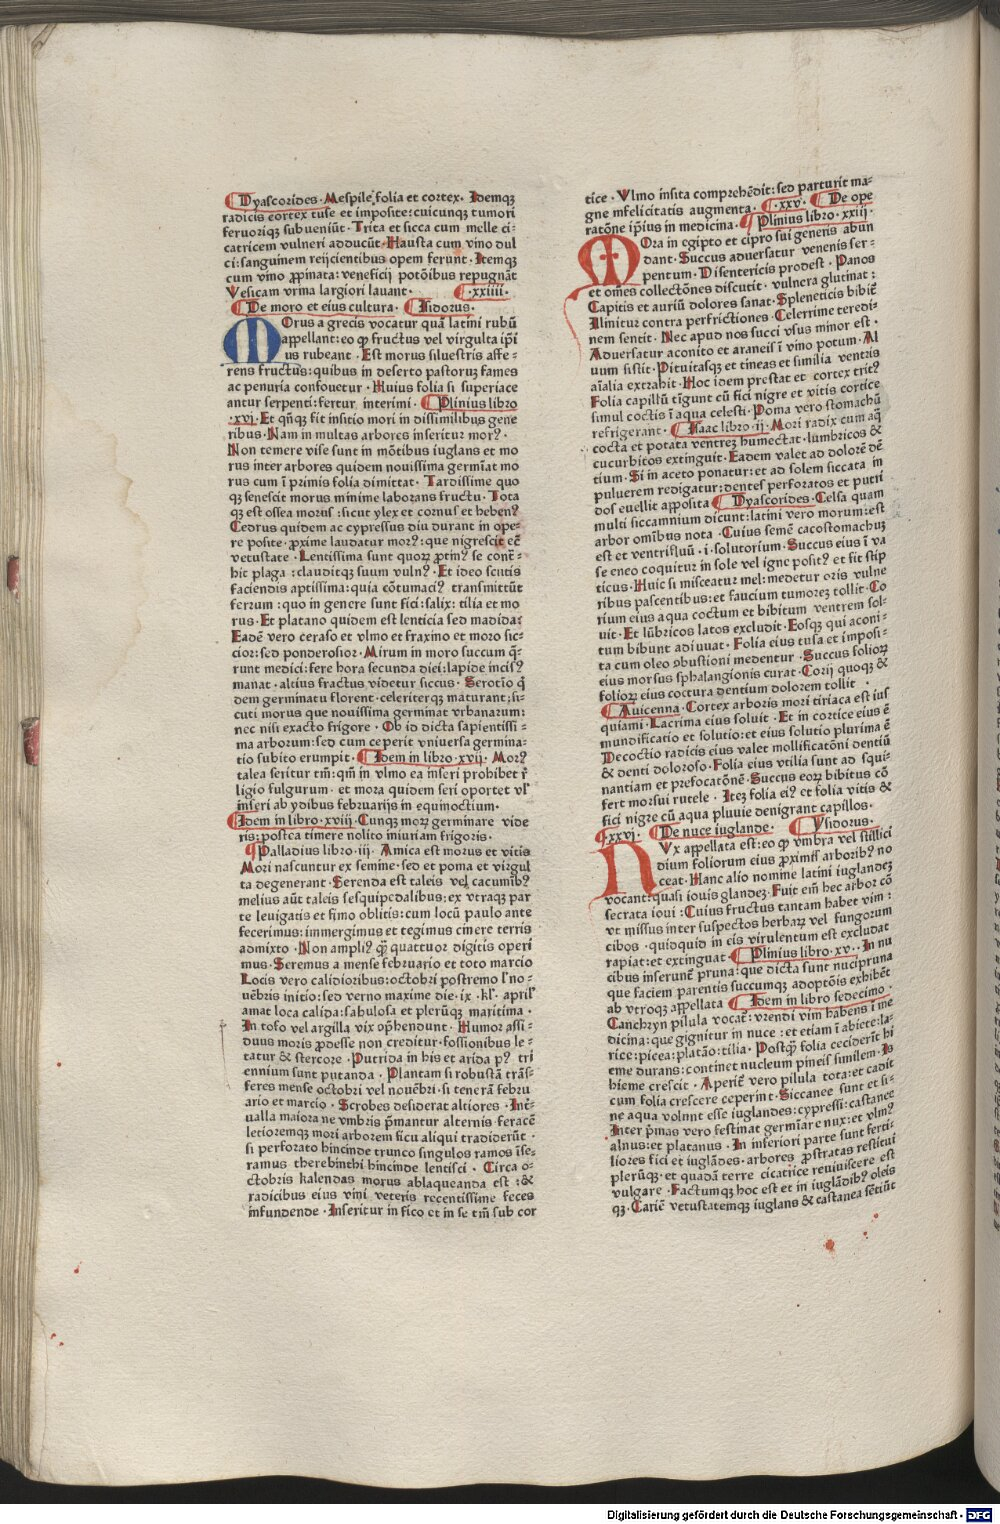 Dyascorides · Mespile folia et cortex · Idemqꝫ
radicis cortex tuse et imposite: cuicunqꝫ tumori
feruoriqꝫ subueniūt · Trita et sicca cum melle ci-
catricem vulneri adducūt · Hausta cum vino dul
ci: sanguinem reijcientibus opem ferunt · Itemqꝫ
cum vino ꝓpinata: veneficij potōibus repugnāt
Vesicam vrina largiori lauant · ·xxiiii·
De moro et eius cultura · Isidorus ·
MOrus a grecis vocatur quā latini rubū
appellant: eo ꝙ fructus vel virgulta ip̄i
us rubeant · Est morus siluestris affe-
rens fructus: quibus in deserto pastoruꝫ fames
ac penuria confouetur · Huius folia si superiace
antur serpenti: fertur interimi · Plinius libro
·xvi· Et qn̄qꝫ fit insitio mori in dissimilibus gene
ribus · Nam in multas arbores inseritur morꝰ ·
Non temere vise sunt in mōtibus iuglans et mo
rus inter arbores quidem nouissima germīat mo
rus cum ī primis folia dimittat · Tardissime quo
qꝫ senescit morus minime laborans fructu · Tota
qꝫ est ossea morus: sicut ylex et cornus et hebenꝰ
Cedrus quidem ac cypressus diu durant in ope-
re posite · ꝓxime laudatur morꝰ: que nigrescit eē
vetustate · Lentissima sunt quoꝝ ꝓtinꝰ se contē-
hit plaga: clauditqꝫ suum vulnꝰ · Et ideo scutis
faciendis aptissima: quia cōtumaciꝰ transmittūt
ferrum: quo in genere sunt fici: salix: tilia et mo
rus · Et platano quidem est lenticia sed madida:
Eadē vero ceraso et vlmo et fraxino et moro sic-
cior: sed ponderosior · Mirum in moro succum q̄-
runt medici: fere hora secunda diei: lapide incisꝰ
manat · altius fractus videtur siccus · Serotīo q̄
dem germinatu florent · celeriterqꝫ maturant; si-
cuti morus que nouissima germinat vrbanarum:
nec nisi exacto frigore · Ob id dicta sapientissi-
ma arborum: sed cum ceperit vniuersa germina-
tio subito erumpit · Idem in libro ·xvij· Morꝰ
talea seritur tm̄: qm̄ in vlmo ea inseri prohibet r̄
ligio fulgurum · et mora quidem seri oportet vl'
inseri ab ydibus februarijs in equinoctium ·
Idem in libro ·xviij· Cunqꝫ moꝝ germinare vide
ris: postea timere nolito iniuriam frigoris ·
Palladius libro ·iij · Amica est morus et vitis
Mori nascuntur ex semine · sed et poma et virgul
ta degenerant · Serenda est taleis vel cacuminibꝰ
melius aūt taleis sesquipedalibus: ex vtraqꝫ par
te leuigatis et fimo oblitis: cum locū paulo ante
fecerimus: immergimus et tegimus cinere terris
admixto · Non ampliꝰ ꝙ̄ quattuor digitis operi
mus · Seremus a mense februario et toto marcio
Locis vero calidioribus: octobri postremo l' no-
uēbris initio: sed verno maxime die · ix · kl' april'
amat loca calida: sabulosa et pleruqꝫ maritima ·
In tofo vel argilla vix op̄hendunt · Humor assi-
duus moris ꝓdesse non creditur · fossionibus le-
tatur & stercore · Putrida in his et arida pꝰ tri
ennium sunt putanda · Plantam si robustā trās-
feres mense octobri vel nouēbri · si tenerā febru
ario et marcio · Scrobes desiderat altiores · Int̄-
ualla maiora ne vmbris p̄mantur alternis feracē
letioremqꝫ mori arborem ficu aliqui tradiderūt ·
si perforato hincinde trunco singulos ramos īse-
ramus therebinthi hincinde lentisci · Circa o-
ctobris kalendas morus ablaqueanda est: &
radicibus eius vini veteris recentissime feces
infundende · Inseritur in fico et in se tm̄ sub cor
tice · Vlmo insita comprehēdit: sed parturit ma-
gne infelicitatis augmenta · ·xxv· De ope
ratōne ip̄ius in medicina · Plinius libro ·xxiij·
MOra in egipto et cipro sui generis abun
dant · Succus aduersatur venenis ser-
pentum · Disentericis prodest · Panos
et om̄es collectōnes discutit · vulnera glutinat:
Capitis et auriū dolores sanat · Spleneticis bibiť
Ilinitur contra perfrictiones · Celerrime teredi-
nem sentit · Nec apud nos succi vsus minor est ·
Aduersatur aconito et araneis ī vino potum · Al
uum sistit · Pituitasqꝫ et tineas et similia ventris
aīalia extrahit · Hoc idem prestat et cortex tritꝰ
Folia capillū tīgunt cū fici nigre et vitis cortice
simul coctis ī aqua celesti · Poma vero stomachū
refrigerant · Isaac libro · ij · Mori radix cum aq̄
cocta et potata ventreꝫ humectat · lumbricos &
cucurbitos extinguit · Eadem valet ad dolorē dē
tium · Si in aceto ponatur: et ad solem siccata in
puluerem redigatur: dentes perforatos et putri
dos euellit apposita · Dyascorides · Celsa quam
multi siccamnium dicunt: latini vero morum: est
arbor omībus nota · Cuius semē cacostomachuꝫ
est et ventrifluū · i · solutorium · Succus eius ī va
se eneo coquitur in sole vel igne positꝰ et fit stip
ticus · Huic si misceatur mel: medetur oris vulne
ribus pascentibus: et faucium tumoreꝫ tollit · Co
rium eius aqua coctum et bibitum ventrem sol-
uit · Et lūbricos latos excludit · Eosqꝫ qui aconi-
tum bibunt adiuuat · Folia eius tusa et imposi-
ta cum oleo ꝯbustioni medentur · Succus folioꝝ
eius morsus sphalangionis curat · Corij quoqꝫ &
folioꝝ eius coctura dentium dolorem tollit ·
Auicenna · Cortex arboris mori tiriaca est ius
quiami · Lacrima eius soluit · Et in cortice eius ē
mundificatio et solutio: et eius solutio plurima ē
Decoctio radicis eius valet mollificatōni dentiū
& denti doloroso · Folia eius vtilia sunt ad squi-
nantiam et prefocatōnē · Succus eoꝝ bibitus cō
fert morsui rutele · Iteꝫ folia eiꝰ et folia vitis &
fici nigre cū aqua pluuie denigrant capillos ·
·xxvi· De nuce iuglande · Ysidorus ·
NUx appellata est: eo ꝙ vmbra vel stillici
dium foliorum eius ꝓximis arboribꝰ no
ceat · Hanc alio nomine latini iuglandeꝫ
vocant: quasi iouis glandeꝫ · Fuit em̄ hec arbor cō
secrata ioui: Cuius fructus tantam habet vim:
vt missus inter suspectos herbaꝝ vel fungorum
cibos · quidquid in eis virulentum est excludat
rapiat: et extinguat · Plinius libro ·xv· · In nu
cibus inserunt̄ pruna: que dicta sunt nucipruna
que faciem parentis succumqꝫ adoptōis exhibēt
ab vtroqꝫ appellata · Idem in libro sedecimo ·
Canchryn pilula vocat̄: vrendi vim habens ī me
dicina: que gignitur in nuce: et etiam ī abiete: la-
rice: picea: platāo: tilia · Postꝙ̄ folia ceciderīt hi
eme durans: continet nucleum pineis similem · Is
hieme crescit · Aperiť vero pilula tota: et cadit
cum folia crescere ceperint · Siccanee sunt et si-
ne aqua volunt esse iuglandes: cypressi: castanee
Inter p̄mas vero festinat germīare nux: et vlmꝰ
alnus: et platanus · In inferiori parte sunt ferti-
liores fici et iuglādes · arbores ꝓstratas restitui
plerūqꝫ · et quadā terre cicatrice reuiuiscere est
vulgare · Factumqꝫ hoc est et in iuglādibꝰ oleis
qꝫ · Cariē vetustatemqꝫ iuglans & castanea sētiūt
Digitalisierung gefördert durch die Deutsche Forschungsgemeinschaft - DFG